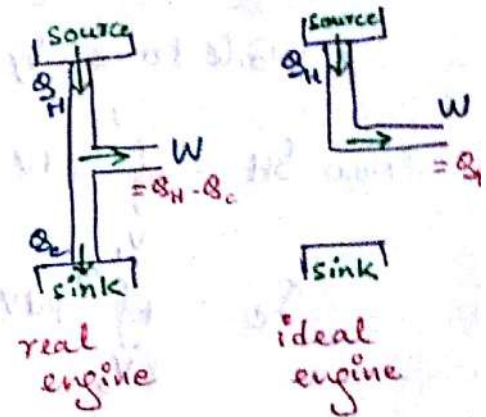 source
Q_H
W
= Q_H - Q_c
Q_c
sink
real
engine
source
Q_H
W
sink
ideal
engine